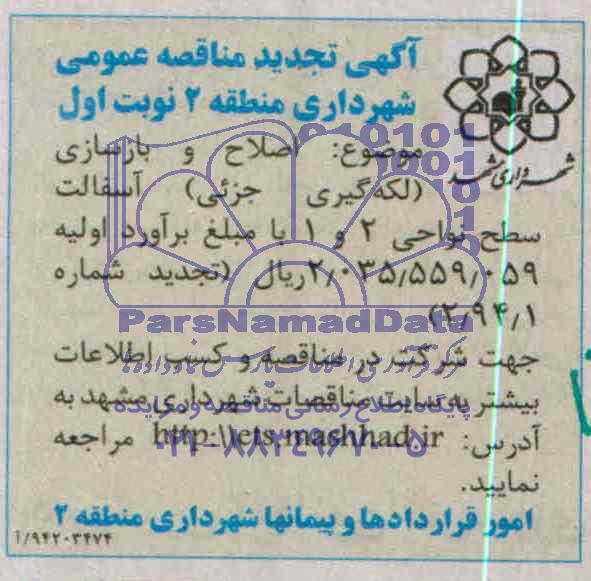 آگهی تجدید مناقصه عمومی
شهرداری منطقه ۲ نوبت اول
شهرداری مشهد
موضوع: اصلاح و بازسازی
(لکه‌گیری جزئی) آسفالت
سطح نواحی ۲ و ۱ با مبلغ برآورد اولیه
۲٫۰۳۵٫۵۵۹٫۰۵۹ریال (تجدید شماره
۲٫۹۴٫۱)
جهت شرکت در مناقصه و کسب اطلاعات
بیشتر به سایت مناقصات شهرداری مشهد به
آدرس: http:\\ets.mashhad.ir مراجعه
نمایید.
امور قراردادها و پیمانها شهرداری منطقه ۲
۹۴۲۰۳۴۷۴/آ
ParsNamadData
پایگاه اطلاع رسانی مناقصه و مزایده
۰۲۱-۸۸۳۴۹۶۷۰-۵